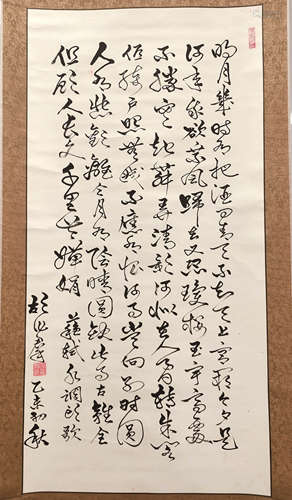 明月幾時有把酒問青天不知天上宮闕今夕是
何年我欲乘風歸去又恐瓊樓玉宇高處
不勝寒起舞弄清影何似在人間轉朱閣
低綺戶照無眠不應有恨何事長向別時圓
人有悲歡離合月有陰晴圓缺此事古難全
但願人長久千里共嬋娟 蘇軾水調歌頭
乙未初秋